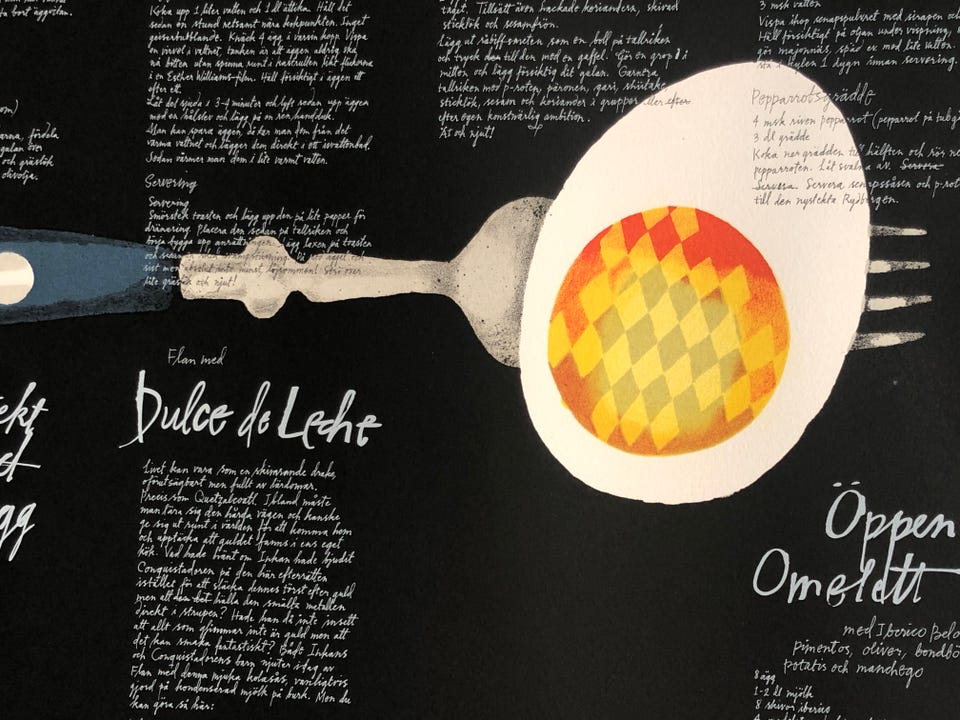 ta bort äggoljan.
om)
arna, fördela
galan över
och gräslök
olivolja.
Koka upp 1 liter vatten och 1 dl ättika. Håll det
sedan en stund retsamt nära kokpunkten. Inget
geiserbubblande. Knäck 4 ägg i varsin kopp. Vispa
en virvel i vattnet, tanken är att äggen aldrig ska
nå botten utan spinna runt i kastrullen likt flickorna
i en Esther Williams-film. Häll försiktigt i äggen ett
efter ett.
Låt det sjuda i 3-4 minuter och lyft sedan upp äggen
med en hålslev och lägg på en ren handduk.
Man kan spara äggen, då tar man dom från det
varma vattnet och lägger dem direkt i ett isvattenbad.
Sedan värmer man dom i lite varmt vatten.
Servering
Servering
Smörstek toasten och lägg upp den på lite papper för
dränering. Placera den sedan på tallriken och
börja bygga upp anrättningen. Lägg laxen på toasten
och njut!
vaget. Tillsätt även hackade koriandern, skivad
sticklök och sesamfrön.
Lägg ut råbiffsmeten som en boll på tallriken
och tryck den till den med en gaffel. Gör en grop i
mitten och lägg försiktig dit gulan. Garnera
tallriken med p-roten, päronen, gari, shiitake,
sticklök, sesam och koriander i grupper eller efter
efter egen konstnärlig ambition.
Ät och njut!
3 msk vatten
Vispa ihop senapspulvret med sirapen och
Häll försiktigt på oljan under vispning,
gör majonnäs, späd er med lite vatten.
stå i kylen 1 dygn innan servering.
Pepparrotsgrädde
4 msk riven pepparrot (pepparrot på tub
3 dl grädde
Koka ner grädden till hälften och rör ner
pepparroten. Låt svalna av. Servera
Servera. Servera senapssåsen och p-rot
till den nystekta Rydbergen.
ekt
et
gg
Flan med
Dulce de Leche
Livet kan vara som en skimrande drake,
oförutsägbart men fullt av lärdomar.
Precis som Quetzalcoatl. Ibland måste
man lära sig den hårda vägen och kanske
ge sig ut runt i världen för att komma hem
och upptäcka att guldet fanns i ens eget
kök. Vad hade hänt om Inkan hade bjudit
Conquistadoren på den här efterrätten
istället för att släcka dennes törst efter guld
men att hälla den smälta metallen
direkt i strupen? Hade han då inte insett
att allt som glimmar inte är guld men att
det kan smaka fantastiskt? Både Inkans
och Conquistadorens barn njuter idag av
Flan med denna mjuka kolasås, vanligtvis
gjord på kondenserad mjölk på burk. Men du
kan göra så här:
Öppen
Omelett
med Iberico Bello
Pimentos, oliver, bondbö
potatis och manchego
8 ägg
1-2 dl mjölk
8 skivor iberico